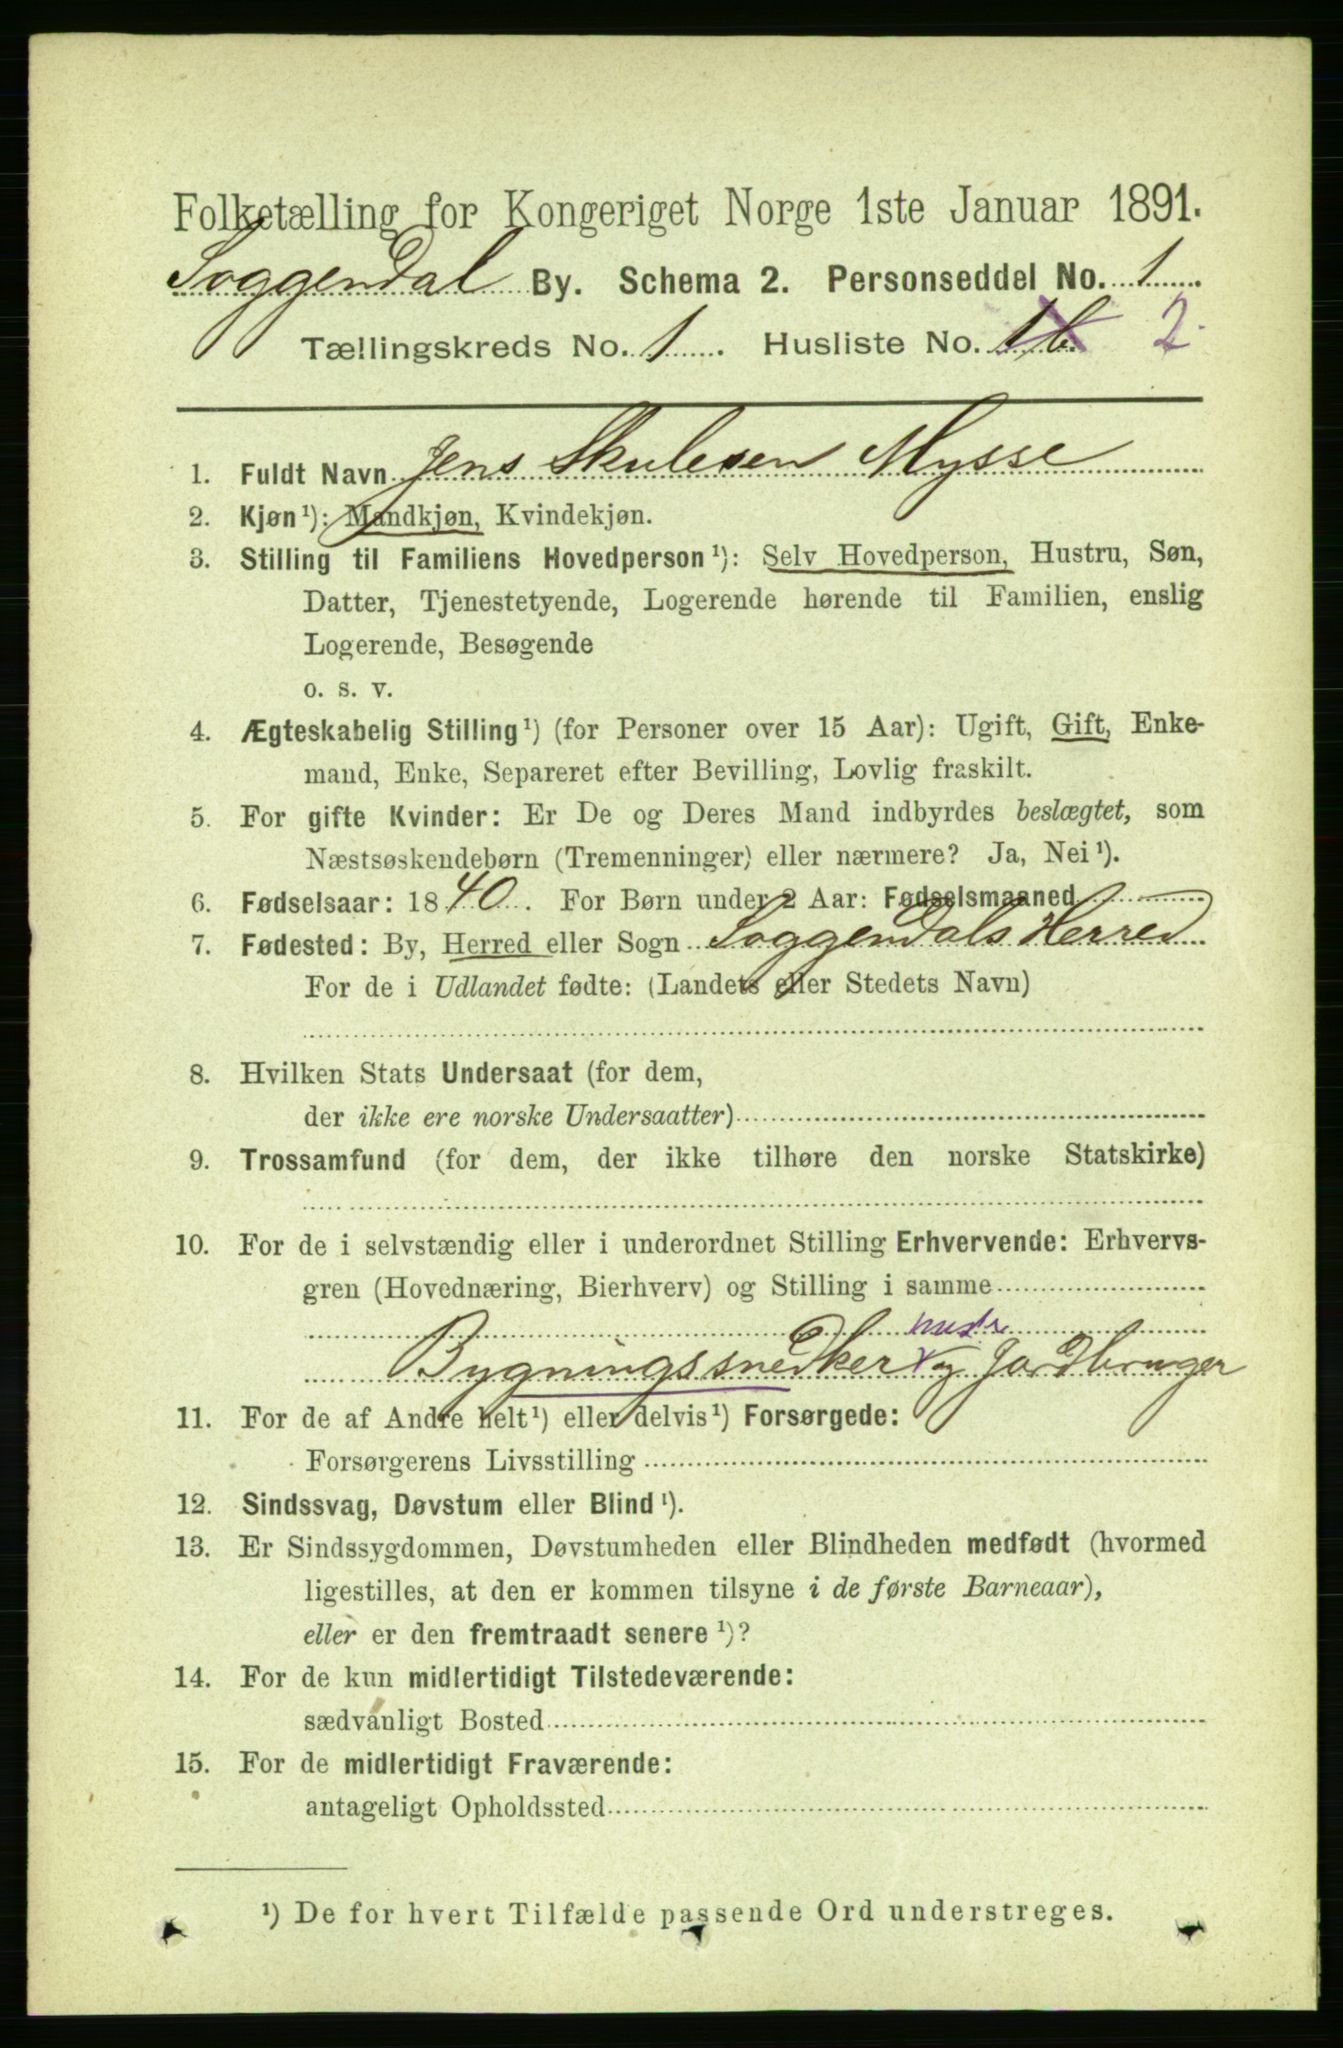 Folketælling for Kongeriget Norge 1ste Januar 1891.
Soggendal By. Schema 2. Personseddel No. 1
Tællingskreds No. 1. Husliste No. 1b. 2
1. Fuldt Navn Jens Skulesen Mysse
2. Kjøn¹): Mandkjøn, Kvindekjøn.
3. Stilling til Familiens Hovedperson¹): Selv Hovedperson, Hustru, Søn,
Datter, Tjenestetyende, Logerende hørende til Familien, enslig
Logerende, Besøgende
o. s. v.
4. Ægteskabelig Stilling¹) (for Personer over 15 Aar): Ugift, Gift, Enke-
mand, Enke, Separeret efter Bevilling, Lovlig fraskilt.
5. For gifte Kvinder: Er De og Deres Mand indbyrdes beslægtet, som
Næstsøskendebørn (Tremenninger) eller nærmere? Ja, Nei¹).
6. Fødselsaar: 1840. For Børn under 2 Aar: Fødselsmaaned
7. Fødested: By, Herred eller Sogn Soggendals Herred
For de i Udlandet fødte: (Landets eller Stedets Navn)
8. Hvilken Stats Undersaat (for dem,
der ikke ere norske Undersaatter)
9. Trossamfund (for dem, der ikke tilhøre den norske Statskirke)
10. For de i selvstændig eller i underordnet Stilling Erhvervende: Erhvervs-
gren (Hovednæring, Bierhverv) og Stilling i samme
Bygningssnedker og Jordbruger
11. For de af Andre helt¹) eller delvis¹) Forsørgede:
Forsørgerens Livsstilling
12. Sindssvag, Døvstum eller Blind¹).
13. Er Sindssygdommen, Døvstumheden eller Blindheden medfødt (hvormed
ligestilles, at den er kommen tilsyne i de første Barneaar),
eller er den fremtraadt senere¹)?
14. For de kun midlertidigt Tilstedeværende:
sædvanligt Bosted
15. For de midlertidigt Fraværende:
antageligt Opholdssted
¹) De for hvert Tilfælde passende Ord understreges.